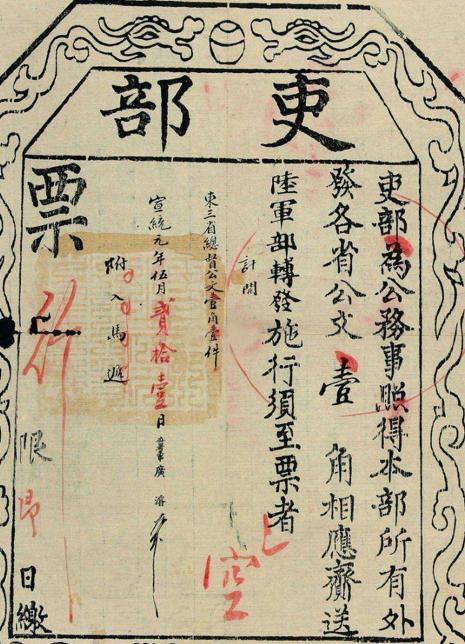 吏部
吏部為公務事照得本部所有外
發各省公文壹角相應齎送
陸軍部轉發施行須至票者
計開
東三省總督公文壹角壹件
宣統元年伍月貳拾壹日
附入馬遞
票
行
限即日繳